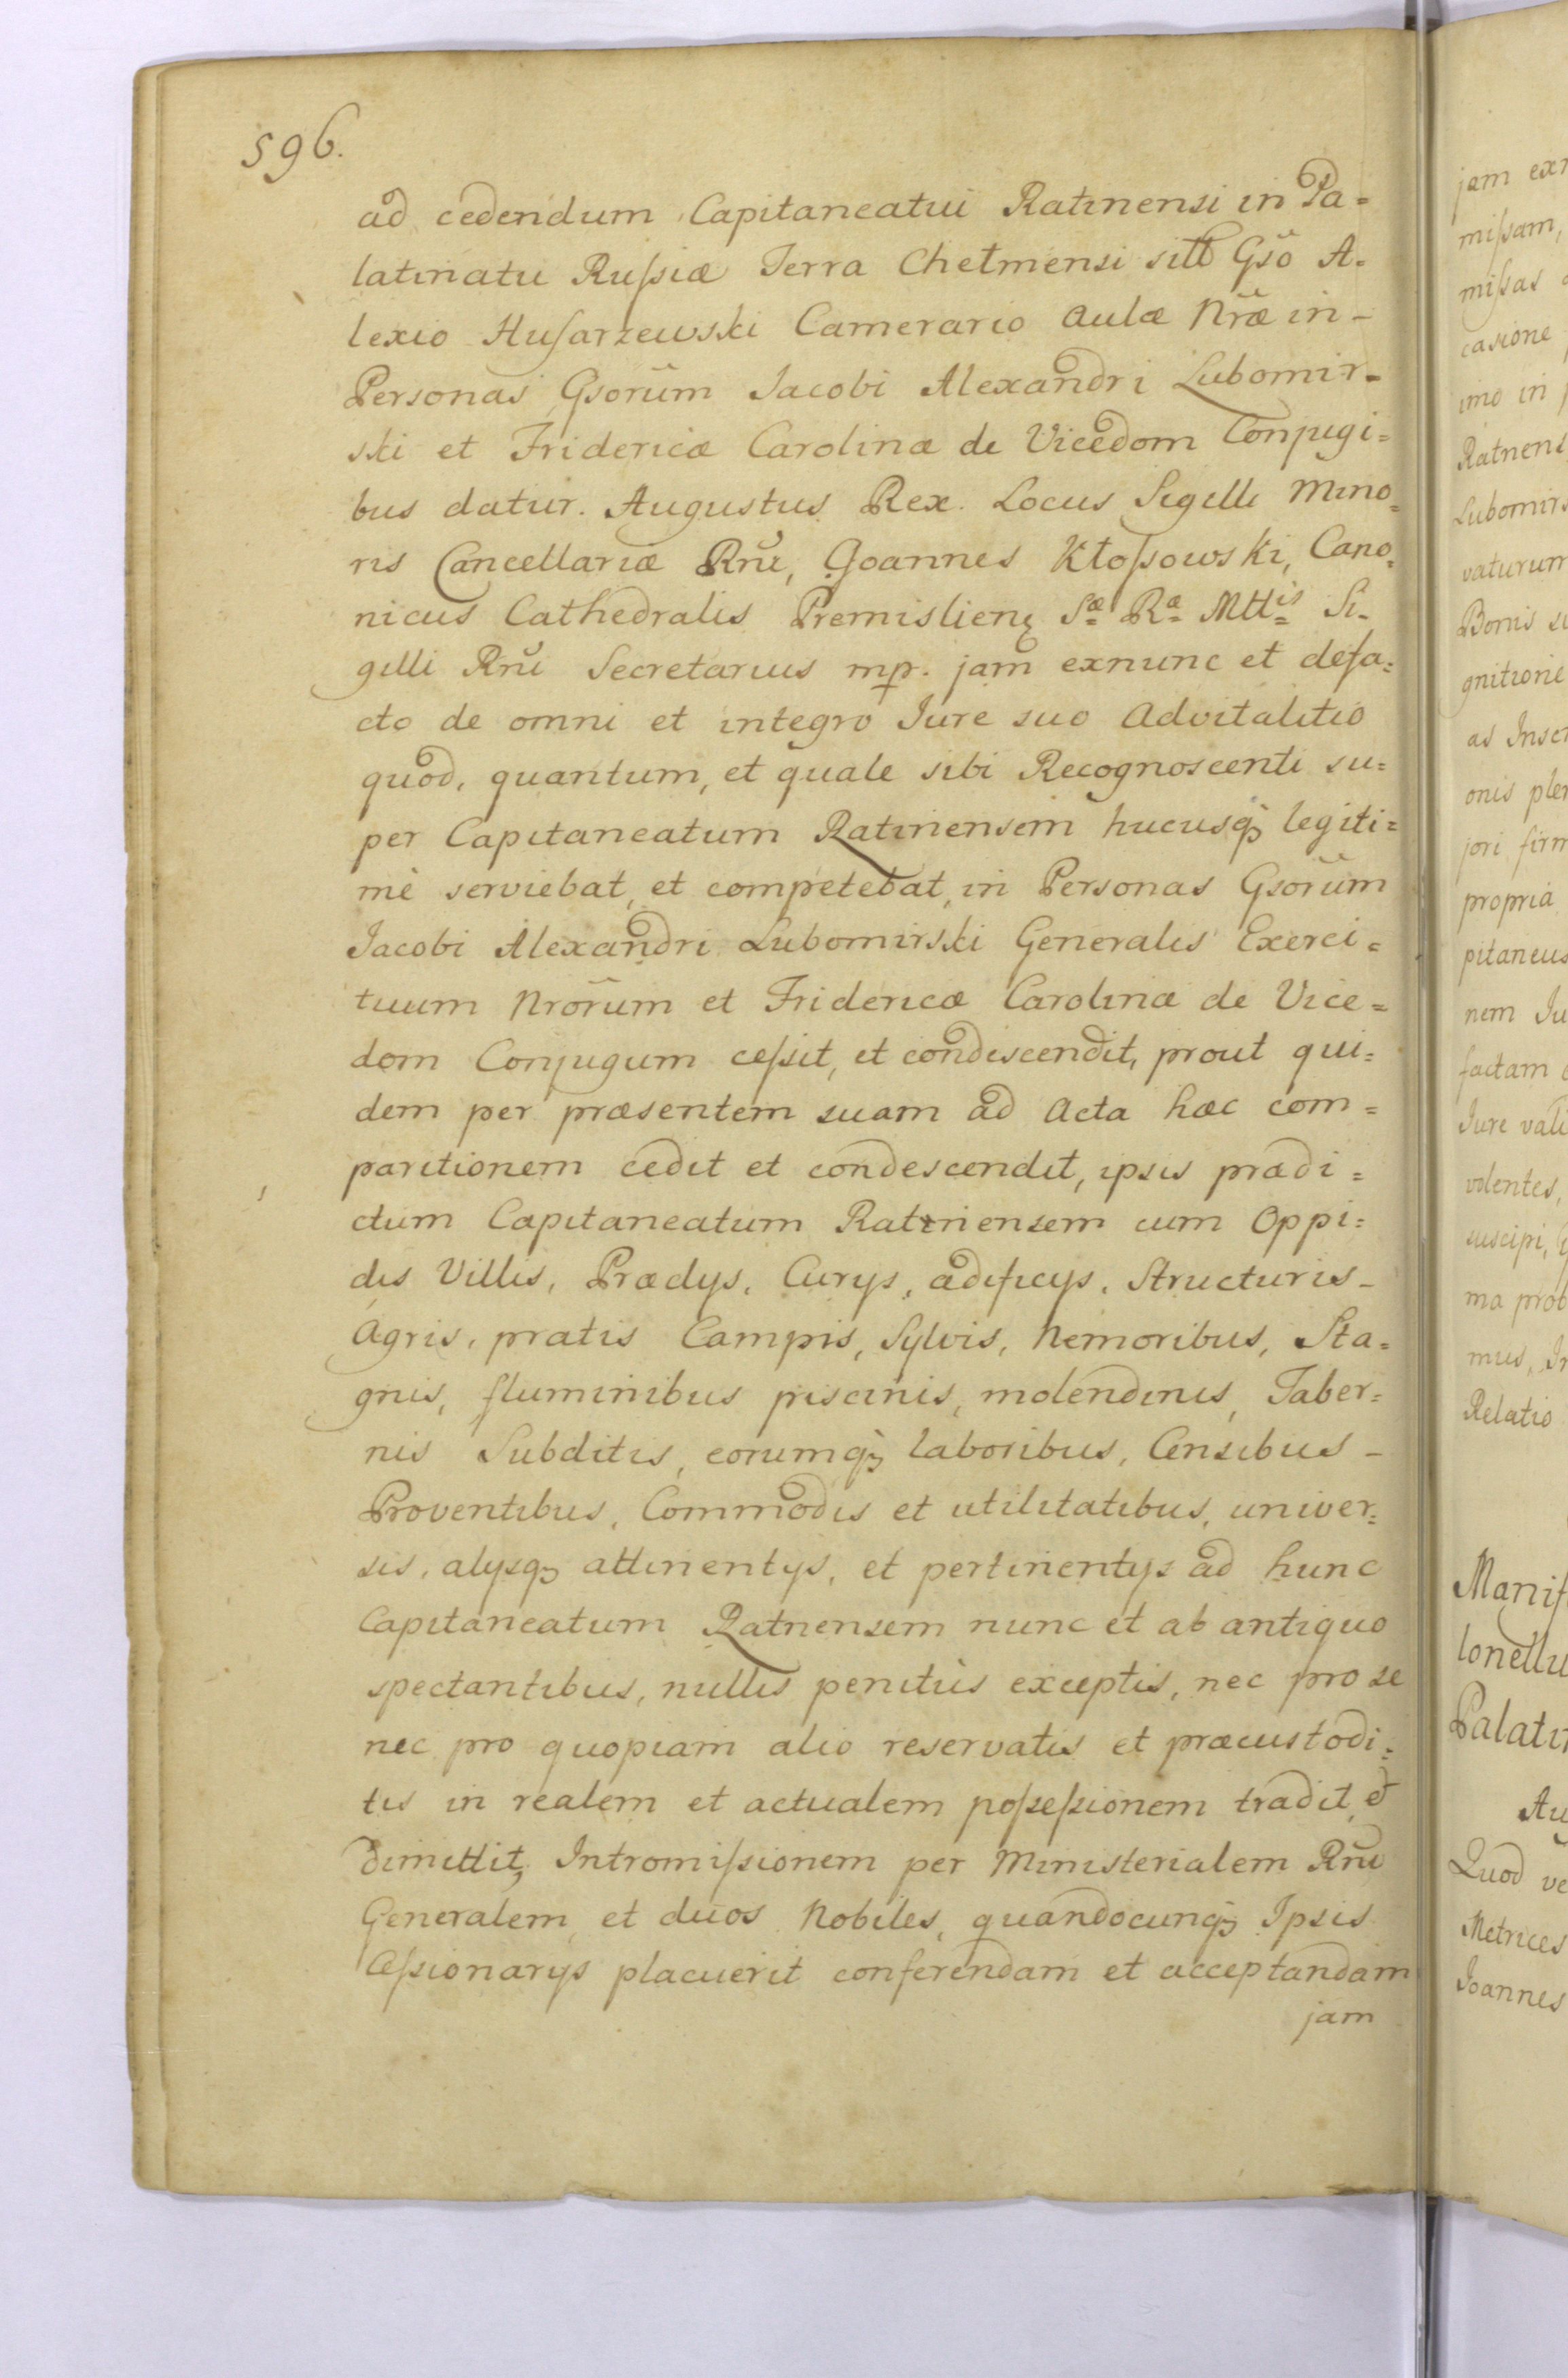 596.
ad cedendum Capitaneatui Ratnensi in Pa=
latinatu Rußiæ Terra Chełmensi sitt Gsõ A=
lexio Husarzewski Camerario Aulæ Nrãe in-
Personas Gsorũm Jacobi Alexandri Lubomir=
ski et Fridericæ Carolinæ de Vicedom Conjugi=
bus datur. Augustus Rex. Locus Sigilli Mino=
ris Cancellariæ Rnĩ, Joannes Kłoßowski, Cano=
nicus Cathedralis Premislienę Sæ Ræ Mttis Si=
gilli Rnĩ Secretarius mp. jam exnunc et defa=
cto de omni et integro Jure suo Advitalitio
quod, quantum, et quale sibi Recognoscenti su=
per Capitaneatum Ratnensem hucusq̃ legiti=
mè serviebat, et competebat, in Personas Gsorũm
Jacobi Alexandri Lubomirski Generalis Exerci=
tuum Nrorũm et Fridericæ Carolinæ de Vice=
dom Conjugum ceßit, et condiscendit, prout qui=
dem per præsentem suam ad Acta hæc com=
paritionem cedit et condescendit, ipsis prædi=
ctum Capitaneatum Ratnensem cum Oppi=
dis Villis, Prædys, Curys, ædificys, Structuris-
Agris, pratis Campis, Sylvis, Nemoribus, Sta=
gnis, fluminibus piscinis, molendinis, Taber=
nis Subditis, eorumq̃ laboribus, Censibus-
Proventibus, Commodis et utilitatibus, univer=
sis, alysq̃ attinentys, et pertinentys ad hunc
Capitaneatum Ratnensem nunc et ab antiquo
spectantibus, nullis penitùs exceptis, nec pro se
nec pro quopiam alio reservatis et præcustodi=
tis in realem et actualem poßeßionem tradit, et
dimittitq̃ Intromißionem per Ministerialem Rnĩ
Generalem, et duos Nobiles, quandocunq̃ Ipsis
Ceßionarys placuerit conferendam et acceptandam
jam
jam exn
mißam,
mißas
casione
imo in
Ratnens
Lubomirs
vaturum
Bonis su
gnitione
as Inscr
onis plen
jori firm
propria
pitaneus
nem Ju
factam
Jure vali
volentes,
suscipi,
ma prob
mus, In
Relatio
Manif
lonellu
Palatin
Au
Quod ve
Metrices
Joannes